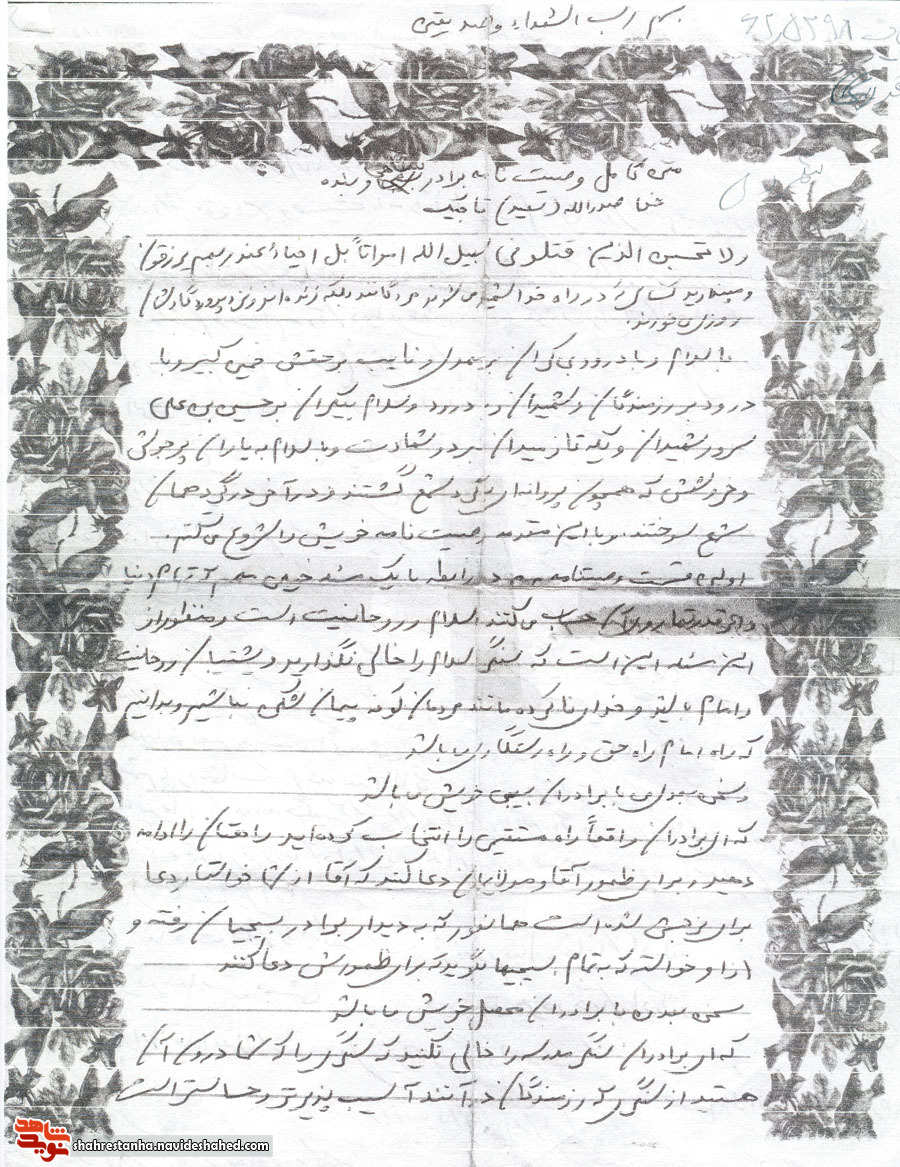 بسم رب الشهداء و الصدیقین
متن کامل وصیت نامه برادر بسیجی و رزمنده
صدرالله (سعید) تاجیک
ولا تحسبن الذین قتلو فی سبیل الله امواتاً بل احیاءٌ عند ربهم یرزقون
و مپندارید کسانی را در راه خدا شهید می شوند مردگانند بلکه زنده اند و نزد پروردگارشان
روزی می خورند.
با سلام و با درود بی کران بر مهدی و نایب بر حقش خمینی کبیر و با
درود بر رزمندگان و شهیدان و درود و سلام بیکران بر حسین بن علی
سرور شهیدان و یکه تاز میدان نبرد و شهادت و با سلام به یاران پر جوش
و خروشش که همچون پروانه ای گرد شمع گشتند و در آخر در گرد همان
شمع سوختند. و با این مقدمه وصیت نامه خویش را شروع می کنم.
اولین قسمت وصیتنامه در رابطه با یک مسئله خیلی مهم که تمام دنیا
و ابر قدرتها روی آن حساب می کنند اسلام و روحانیت است و منظور از
این مسئله این است که سنگر اسلام را خالی نگذارید و پشتیبان روحانیت
و امام باشید و خدای ناکرده مانند مردمان کوفه پیمان شکن نباشیم و بدانیم
که راه امام راه حق و راه رستگاری می باشد
و سخن بعدی با برادران بسیجی خویش می باشد
که ای برادران واقعاً راه مستقیمی را انتخاب کرده اید و راهتان را ادامه
دهید و برای ظهور آقا و مولایمان دعا کنید که آقا از شما خواستار دعا
برای فرجش شده است همانطور که به دیدار برادر بسیجیمان رفته و
از او خواسته که به تمام بسیجیها بگوید که برای ظهورش دعا کنند
سخن بعدی با برادران محصل خویش می باشد
که ای برادران سنگر مدرسه را خالی نکنید که سنگری را که شما درون آن
هستید از سنگری که رزمندگان در آنند آسیب پذیرتر و حساستر است
نوید شاهد
shahrestanha.navideshahed.com